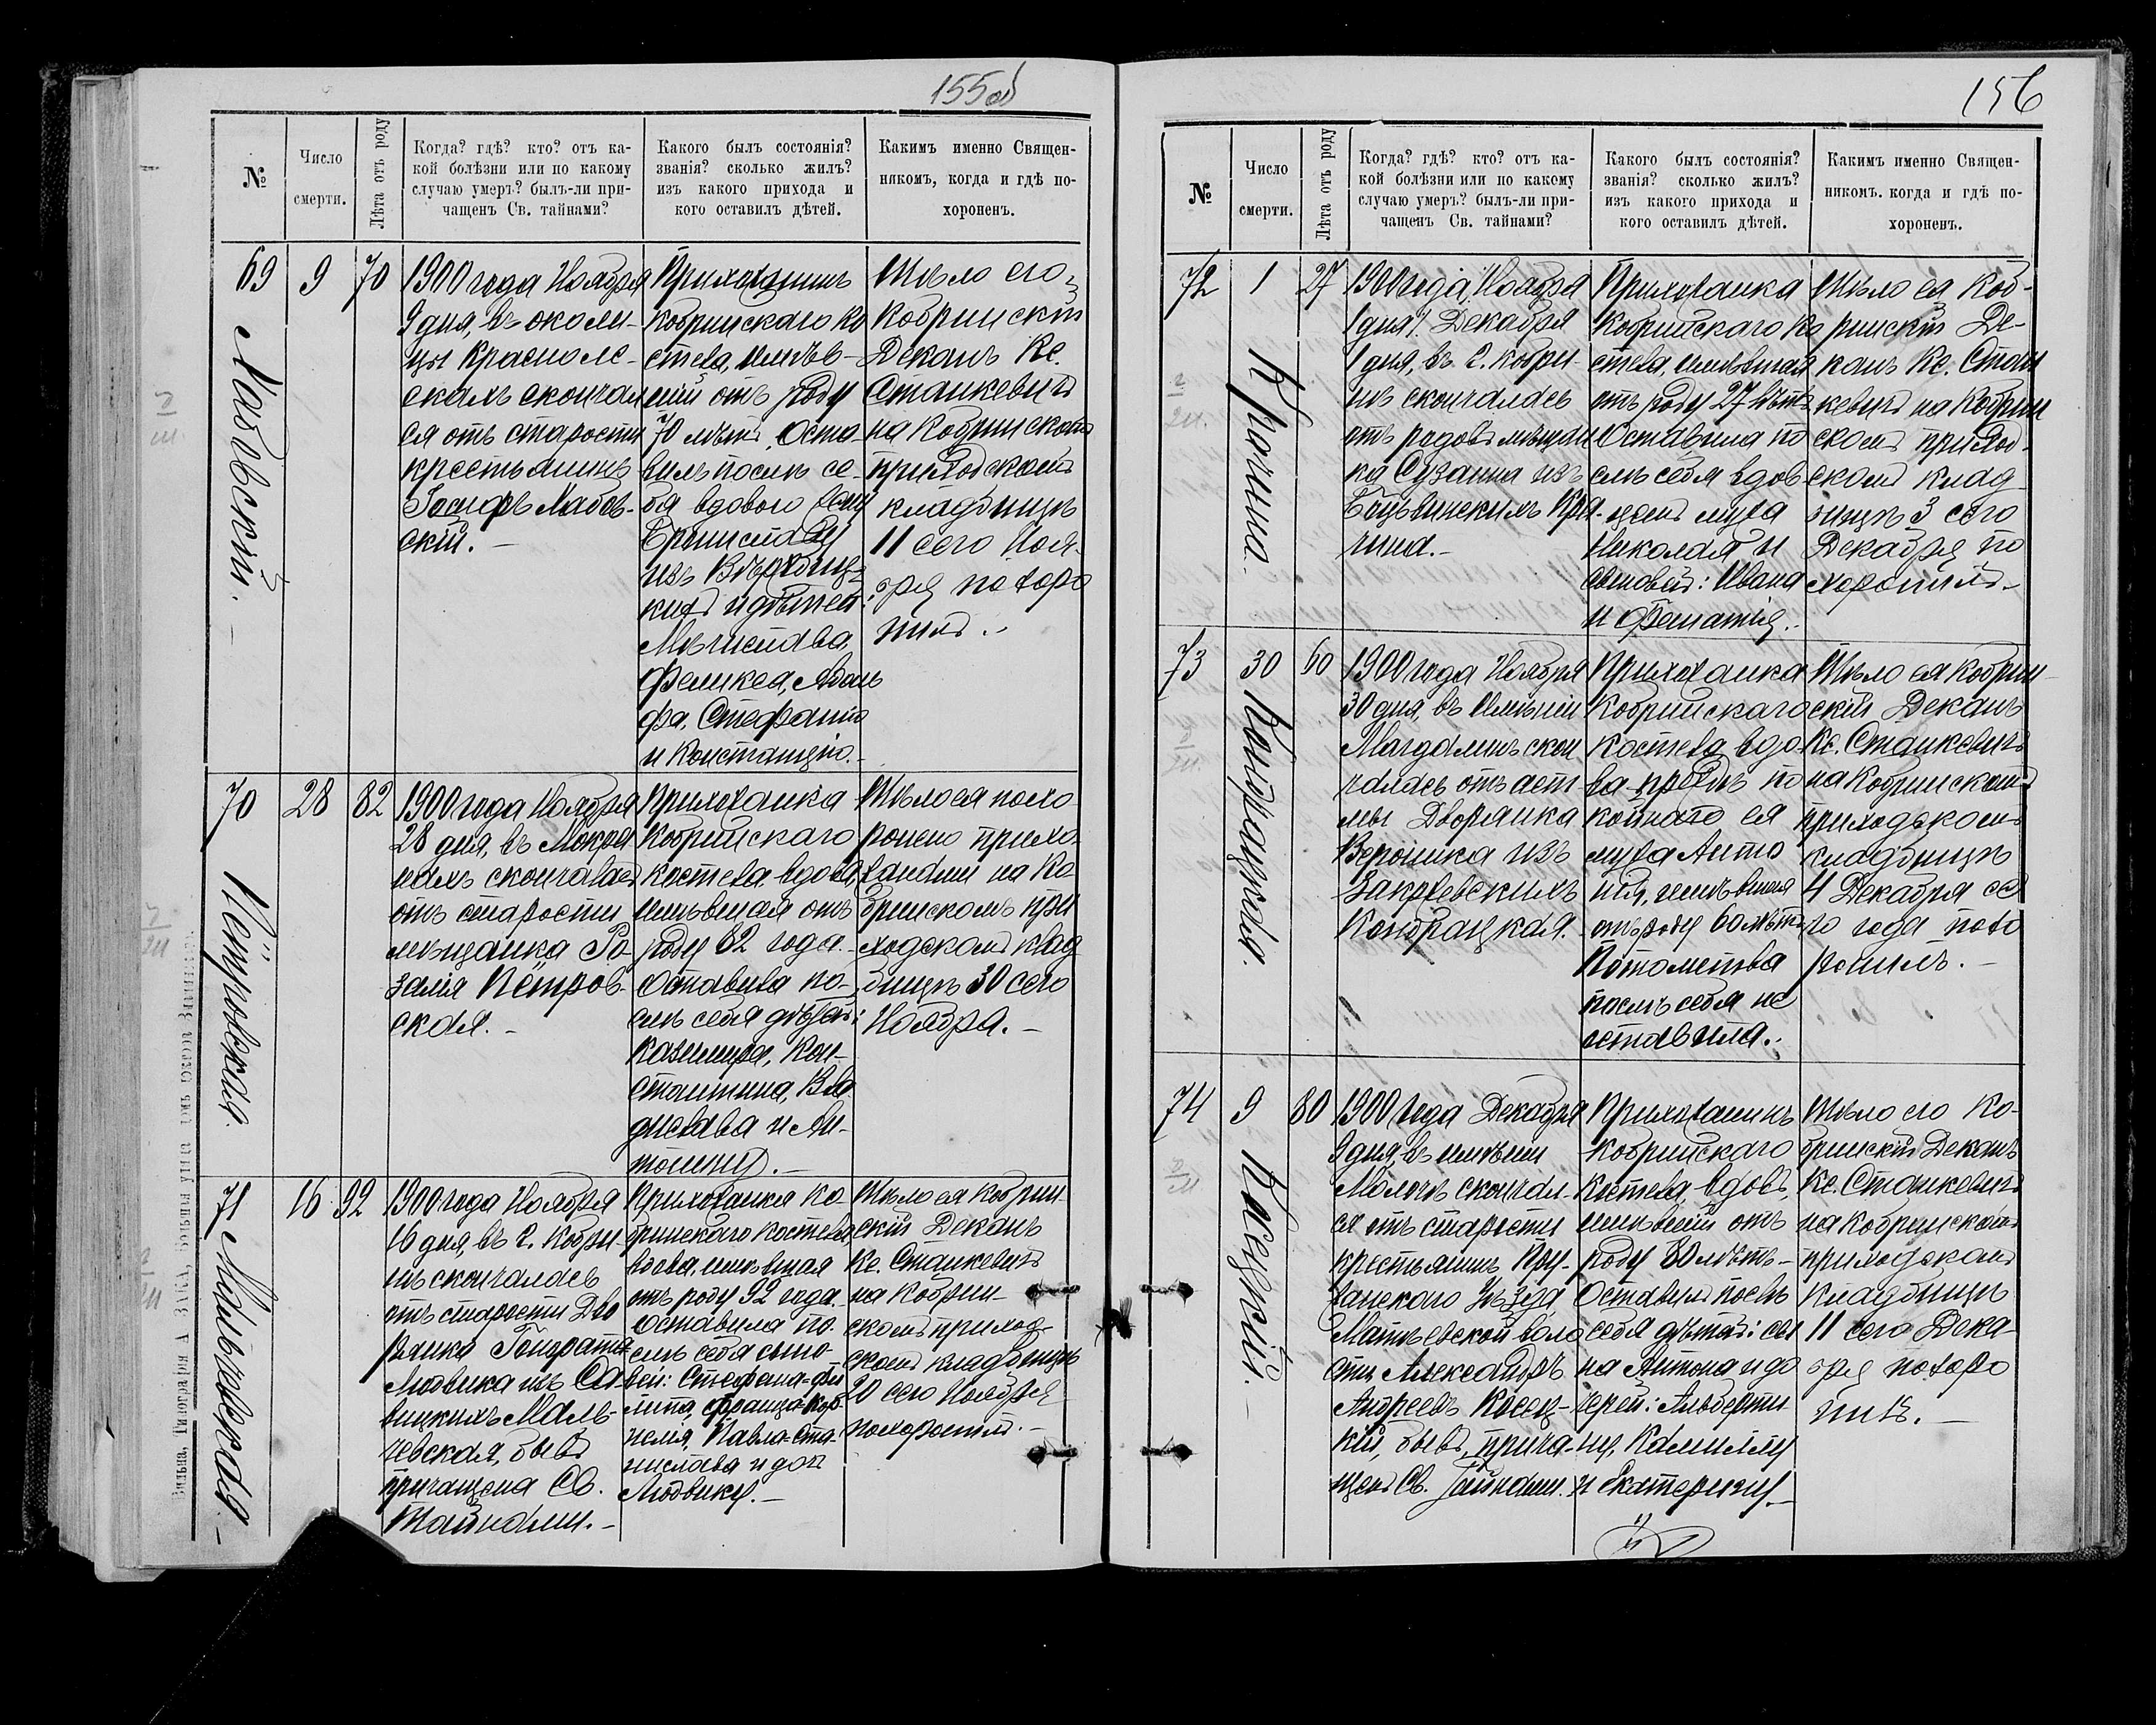 155об
№
Число
смерти.
Лѣта отъ роду
Когда? гдѣ? кто? отъ ка-
кой болѣзни или по какому
случаю умеръ? былъ-ли при-
чащенъ Св. тайнами?
Какого былъ состоянія?
званія? сколько жилъ?
изъ какого прихода и
кого оставилъ дѣтей.
Какимъ именно Священ-
никомъ, когда и гдѣ по-
хороненъ.
69
Лабовскій.
9
70
1900 года Ноября
9 дня, въ околи-
цы Красноле-
скахъ скончал
ся отъ старости
крестьянинъ
Іосифъ Лабов-
скій.
Прихожанинъ
Кобринскаго ко
стела, имѣв-
шій отъ роду
70 лѣтъ. Оста-
вилъ послѣ се-
бя вдовою жену
Брониславу
изъ
кихъ и дѣтей:
Мѣчислава,
Феликса, Адоль
фа, Стефанію
и Констанцію.
Тѣло его
Кобринскій
Деканъ Кс.
Станкевичъ
на Кобринскомъ
приходскомъ
кладбищѣ
11 сего Ноя-
бря похоро
нилъ.
70
Петровская.
28
82
1900 года Ноября
28 дня, въ Мокра
нахъ скончалась
отъ старости
мѣщанка Ро-
залія Петров-
ская.
Прихожанка
Кобринскаго
костела вдова,
имѣвшая отъ
роду 82 года.
Оставила по-
слѣ себя дѣтей:
Казимира, Кон-
стантина, Вла
дислава и Ан-
тонину.
Тѣло ея похо
ронено прихо-
жанами на Ко
бринскомъ при
ходскомъ клад
бищѣ 30 сего
Ноября.
71
Мальчевская.
16
92
1900 года Ноября
16 дня, въ г. Кобри-
нѣ скончалась
отъ старости Дво
рянка Гонората
Людвика изъ Са-
вицкихъ Маль-
чевская, бывъ
причащена Св.
Тайнами.
Прихожанка Ко
бринскаго костела
вдова, имѣвшая
отъ роду 92 года.
Оставила по-
слѣ себя сыно-
вей: Стефана-Фи
липа, Франца-Кор
нелія, Павла-Ста-
нислава и дочь
Людвику.
Тѣло ея Кобрин-
скій Деканъ
Кс. Станкевичъ
на Кобрин-
скомъ приход
скомъ кладбищѣ
20 сего Ноября
похоронилъ.
Вильна, Типографія А Г
156
№
Число
смерти.
Лѣта отъ роду
Когда? гдѣ? кто? отъ ка-
кой болѣзни или по какому
случаю умеръ? былъ-ли при-
чащенъ Св. тайнами?
Какого былъ состоянія?
званія? сколько жилъ?
изъ какого прихода и
кого оставилъ дѣтей.
Какимъ именно Священ-
никомъ. когда и гдѣ по-
хороненъ.
72
1
27
1900 года, Ноября
1 дня/. Декабря
1 дня, въ г. Кобри-
нѣ скончалась
отъ родовъ мѣщан
ка Сузанна изъ
Прихожанка
Кобринскаго ко
стела, имѣвшая
отъ роду 27 лѣтъ
Оставила по
слѣ себя вдов-
цемъ мужа
Николая и
сыновей: Ивана
и
Тѣло ея Коб-
ринскій Де-
канъ Кс. Стан
кевичъ на Кобрин
скомъ приход-
скомъ клад-
бищѣ 3 сего
Декабря по
хоронилъ.
73
Кондрацкая.
30
60
1900 года Ноября
30 дня, въ имѣніи
Магдалинъ скон
чалась отъ аст
мы Дворянка
Вероника изъ
Закржевскихъ
Кондрацкая.
Прихожанка
Кобринскаго
костела вдо
ва послѣ по
койнаго ея
мужа Анто
нія, имѣвшая
отъ роду 60 лѣтъ
Потомства
послѣ себя не
оставила.
Тѣло ея Кобрин-
скій Деканъ
Кс. Станкевичъ
на Кобринскомъ
приходскомъ
кладбищѣ
4 Декабря се
го года похо
ронилъ.
74
Косецкій.
9
80
1900 года Декабря
9 дня, въ имѣніи
скончал-
ся отъ старости
крестьянинъ Пру-
жанскаго Уѣзда
Матѣевской воло
сти Александръ
Андреевъ Косец-
кій, бывъ прича-
щенъ Св. Тайнами.
Прихожанинъ
Кобринскаго
костела, вдовъ,
имѣвшій отъ
роду 80 лѣтъ.
Оставилъ послѣ
себя дѣтей: сы
на Антона и до
черей: Альберти
ну, Камиллу
и Екатерину.
Тѣло его Ко-
бринскій Деканъ
Кс. Станкевичъ
на Кобринскомъ
приходскомъ
кладбищѣ
11 сего Дека-
бря похоро
нилъ.